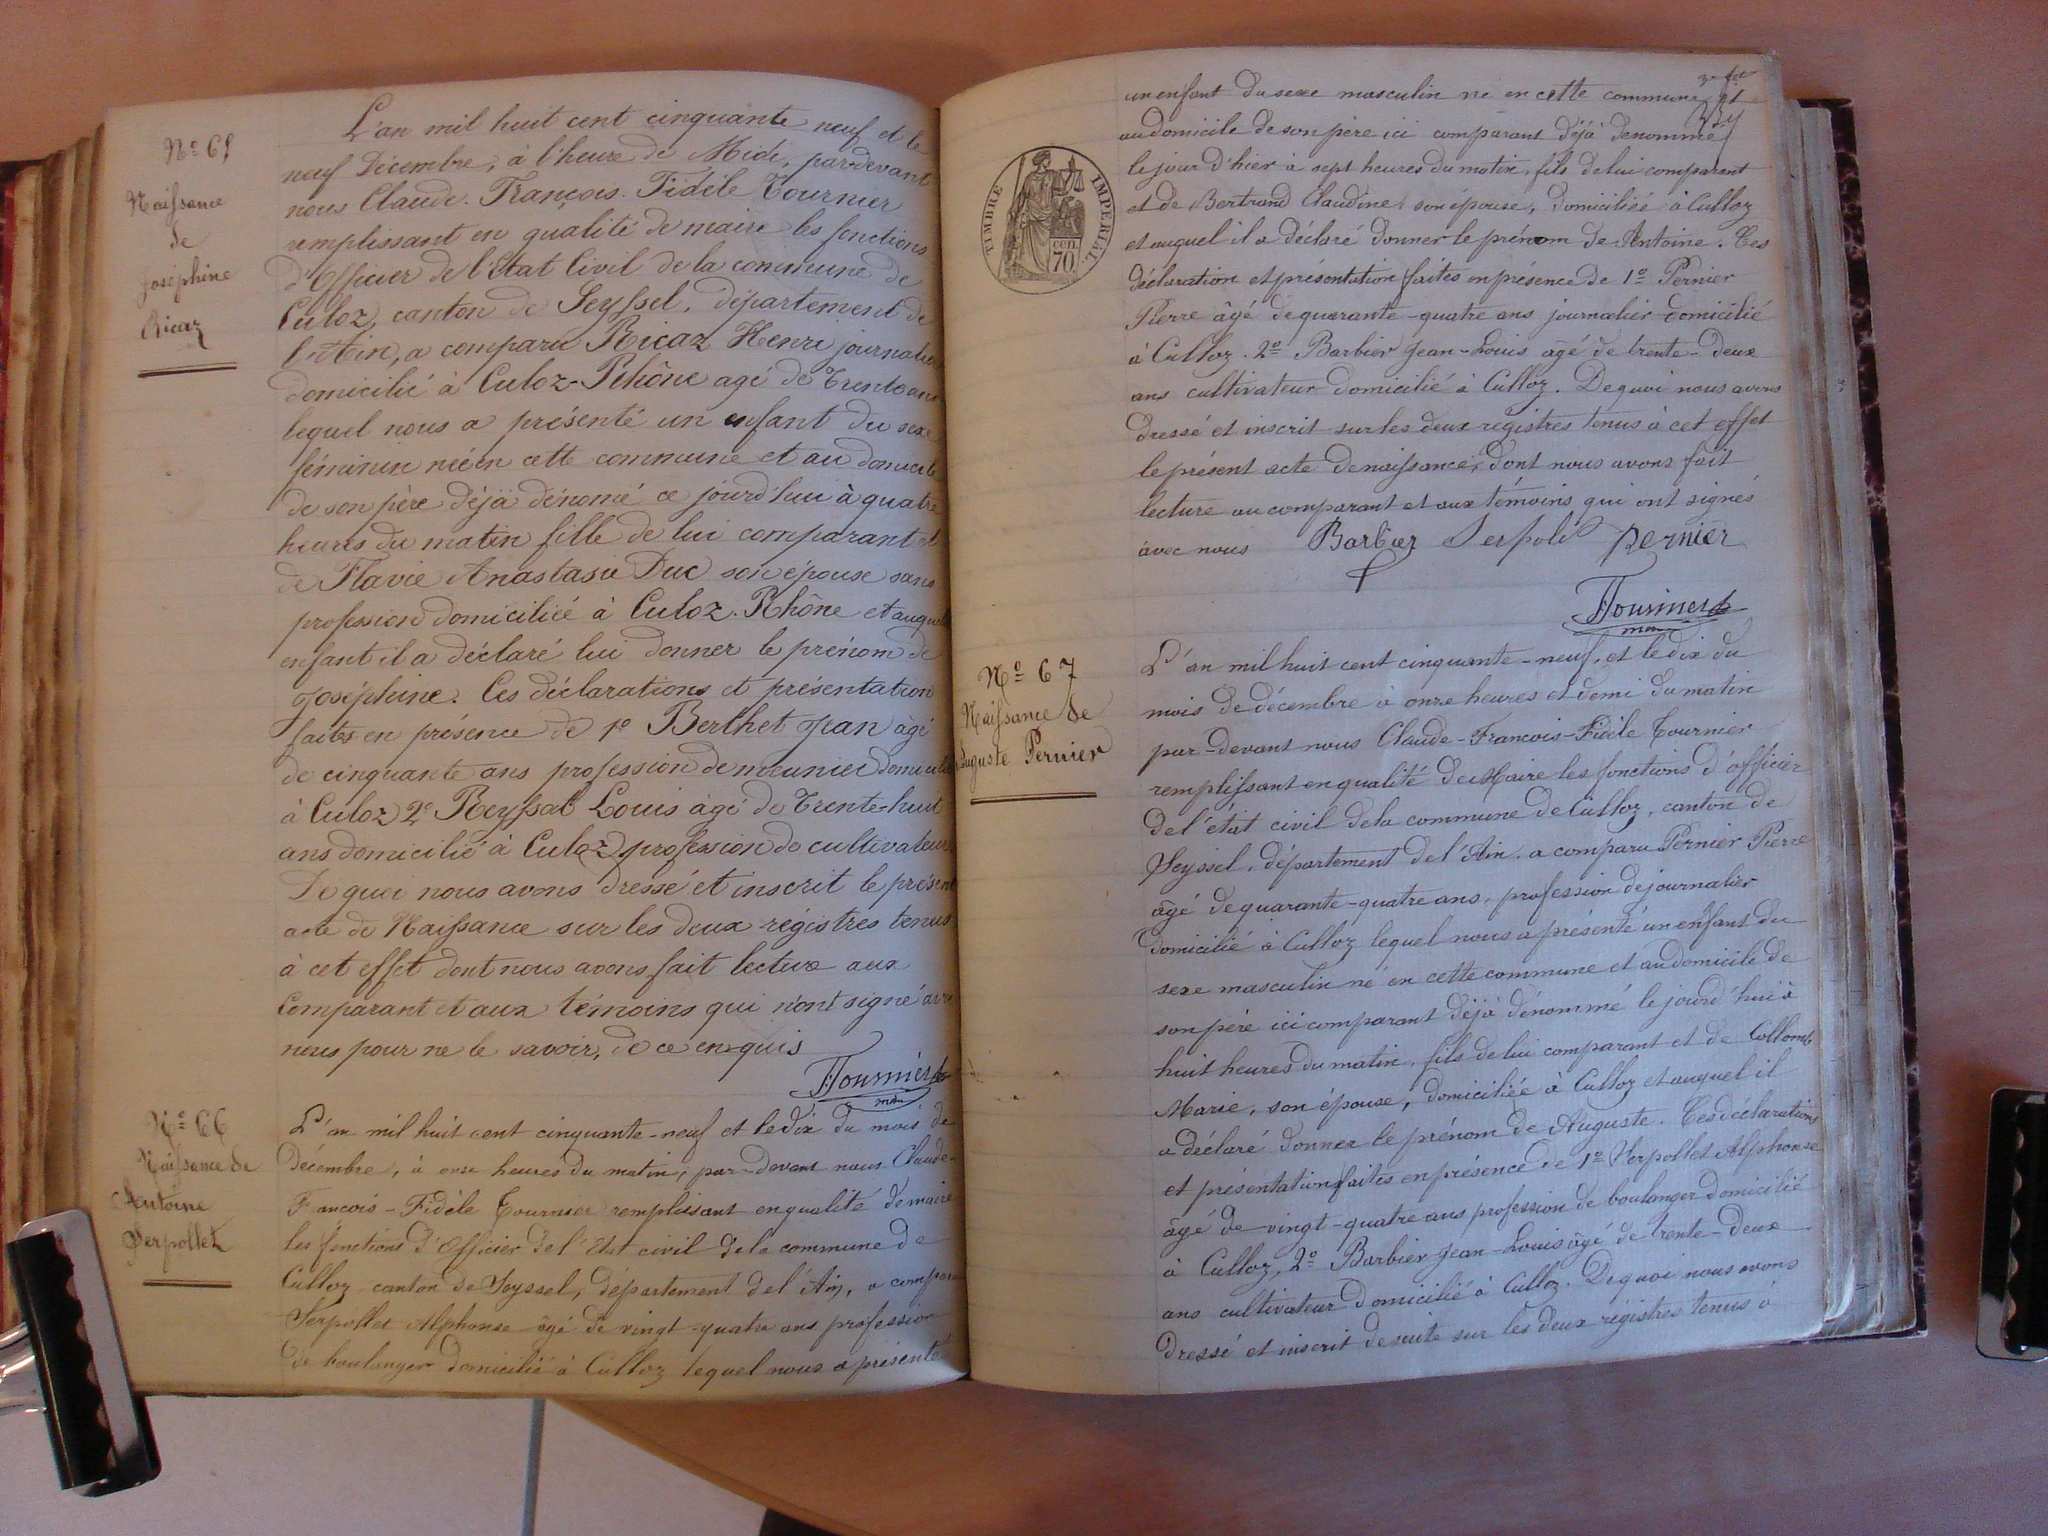 Nº 65
Naissance
de
Joséphine
Ricaz
L'an mil huit cent cinquante neuf et le
neuf Décembre, à l'heure de Midi, par-devant
nous Claude. François. Fidèle Tournier
remplissant en qualité de maire les fonctions
d'Officier de l'Etat Civil de la commune de
Culoz, canton de Seyssel, département de
l'Ain, a comparu Ricaz Henri journalier
domicilié à Culoz-Rhône agé de Trente ans
lequel nous a présenté un enfant du sexe
féminin née en cette commune et au domicile
de son père déjà dénomé ce jourd'hui à quatre
heures du matin fille de lui comparant et
de Flavie Anastasie Duc son épouse sans
profession domiciliée à Culoz. Rhône et auquel
enfant il a déclaré lui donner le prénom de
Joséphine. Ces déclarations et présentation
faites en présence de 1º Berthet Jean âgé
de cinquante ans profession de meunier domicilié
à Culoz 2º Reyssat Louis âgé de Trente-huit
ans domicilié à Culoz profession de cultivateur
De quoi nous avons dressé et inscrit le présent
acte de Naissance sur les deux régistres tenus
à cet effet dont nous avons fait lecture aux
comparant et aux témoins qui n'ont signé avec
nous pour ne le savoir, de ce enquis
Tournier
Nº 66
Naissance de
Antoine
Serpollet
L'an mil huit cent cinquante-neuf et le dix du mois de
Décembre, à onze heures du matin, par-devant nous Claude-
François-Fidèle Tournier remplissant en qualité de maire
les fonctions d'Officier de l'Etat civil de la commune de
Culloz canton de Seyssel, département de l'Ain, a comparu
Serpollet Alphonse âgé de vingt-quatre ans profession
de boulanger domicilié à Culloz lequel nous a présenté
un enfant du sexe masculin né en cette commune et
au domicile de son père ici comparant déjà dénommé
le jour d'hier à sept heures du matin, fils de lui comparant
et de Bertrand Claudine, son épouse, domiciliée à Culloz
et auquel il a déclaré donner le prénom de Antoine. Ces
déclaration et présentation faites en présence de 1º Pernier
Pierre âgé de quarante-quatre ans journalier domicilié
à Culloz. 2º Barbier Jean-Louis âgé de trente-deux
ans cultivateur domicilié à Culloz. De quoi nous avons
dressé et inscrit sur les deux régistres tenus à cet effet
le présent acte de naissance, dont nous avons fait
lecture au comparant et aux témoins qui ont signés
avec nous Barbier Serpolet Pernier
Tournier
TIMBRE IMPERIAL
cen.
70
Nº 67
Naissance de
Auguste Pernier
L'an mil huit cent cinquante-neuf, et le dix du
mois de décembre à onze heures et demi du matin
par-devant nous Claude-François-Fidèle Tournier
remplissant en qualité de Maire les fonctions d'officier
de l'état civil de la commune de Culloz, canton de
Seyssel, département de l'Ain. a comparu Pernier Pierre
âgé de quarante-quatre ans, profession de journalier
domicilié à Culloz lequel nous a présenté un enfant du
sexe masculin né en cette commune et au domicile de
son père ici comparant déjà dénommé le jourd'hui à
huit heures du matin, fils de lui comparant et de Collomb
Marie, son épouse, domiciliée à Culloz et auquel il
a déclaré donner le prénom de Auguste. Ces déclarations
et présentation faites en présence de 1º Serpollet Alphonse
âgé de vingt-quatre ans profession de boulanger domicilié
à Culloz, 2º Barbier Jean-Louis âgé de trente-deux
ans cultivateur domicilié à Culloz. De quoi nous avons
dressé et inscrit de suite sur les deux régistres tenus à